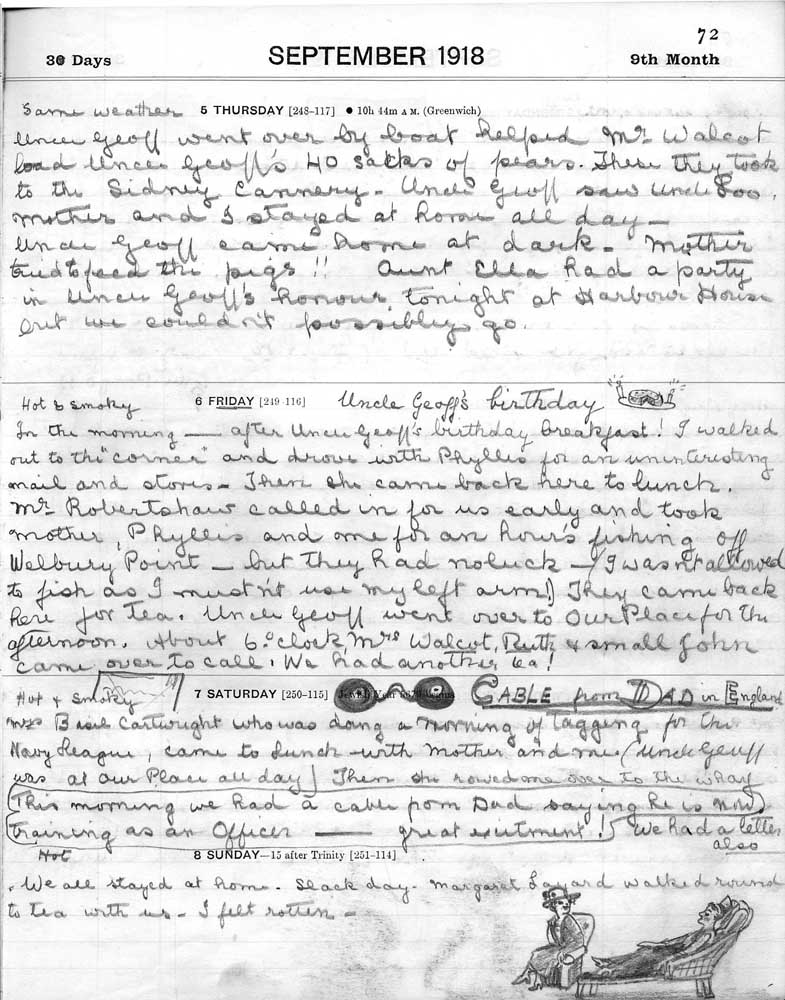 72
30 Days SEPTEMBER 1918 9th Month
Same weather 5 THURSDAY [248-117] ● 10h 44m A M. (Greenwich)
Uncle Geoff went over by boat helped Mr Walcot
load Uncle Geoff's 40 sacks of pears. These they took
to the Sidney Cannery - Uncle Geoff saw Uncle Loo.
Mother and I stayed at home all day -
Uncle Geoff came home at dark - Mother
tried to feed the pigs!! Aunt Ella had a party
in Uncle Geoff's honour, tonight at Harbour House
but we couldn't possibly go.
Hot & smoky 6 FRIDAY [249-116] Uncle Geoff's birthday
In the morning — after Uncle Geoff's birthday breakfast! I walked
out to the "corner" and drove with Phyllis for an uninteresting
mail and stores - Then she came back here to lunch.
Mr Robertshaw called in for us early and took
mother, Phyllis and me for an hour's fishing off
Welbury Point - but they had no luck - (I wasn't allowed
to fish as I mustn't use my left arm) They came back
here for tea. Uncle Geoff went over to Our Place for the
afternoon. About 6 o'clock, Mrs Walcot, Ruth & small John
came over to call. We had another tea!
Hot & Smoky 7 SATURDAY [250-115] CABLE from DAD in England
Mrs Basil Cartwright who was doing a morning of Tagging for the
Navy League, came to lunch with Mother and me (Uncle Geoff
was at Our Place all day) Then she rowed me over to the wharf
(This morning we had a cable from Dad saying he is now
training as an Officer — great exitment!) We had a letter
also
Hot 8 SUNDAY—15 after Trinity [251-114]
We all stayed at home. Slack day. Margaret Layard walked round
to tea with us - I felt rotten -